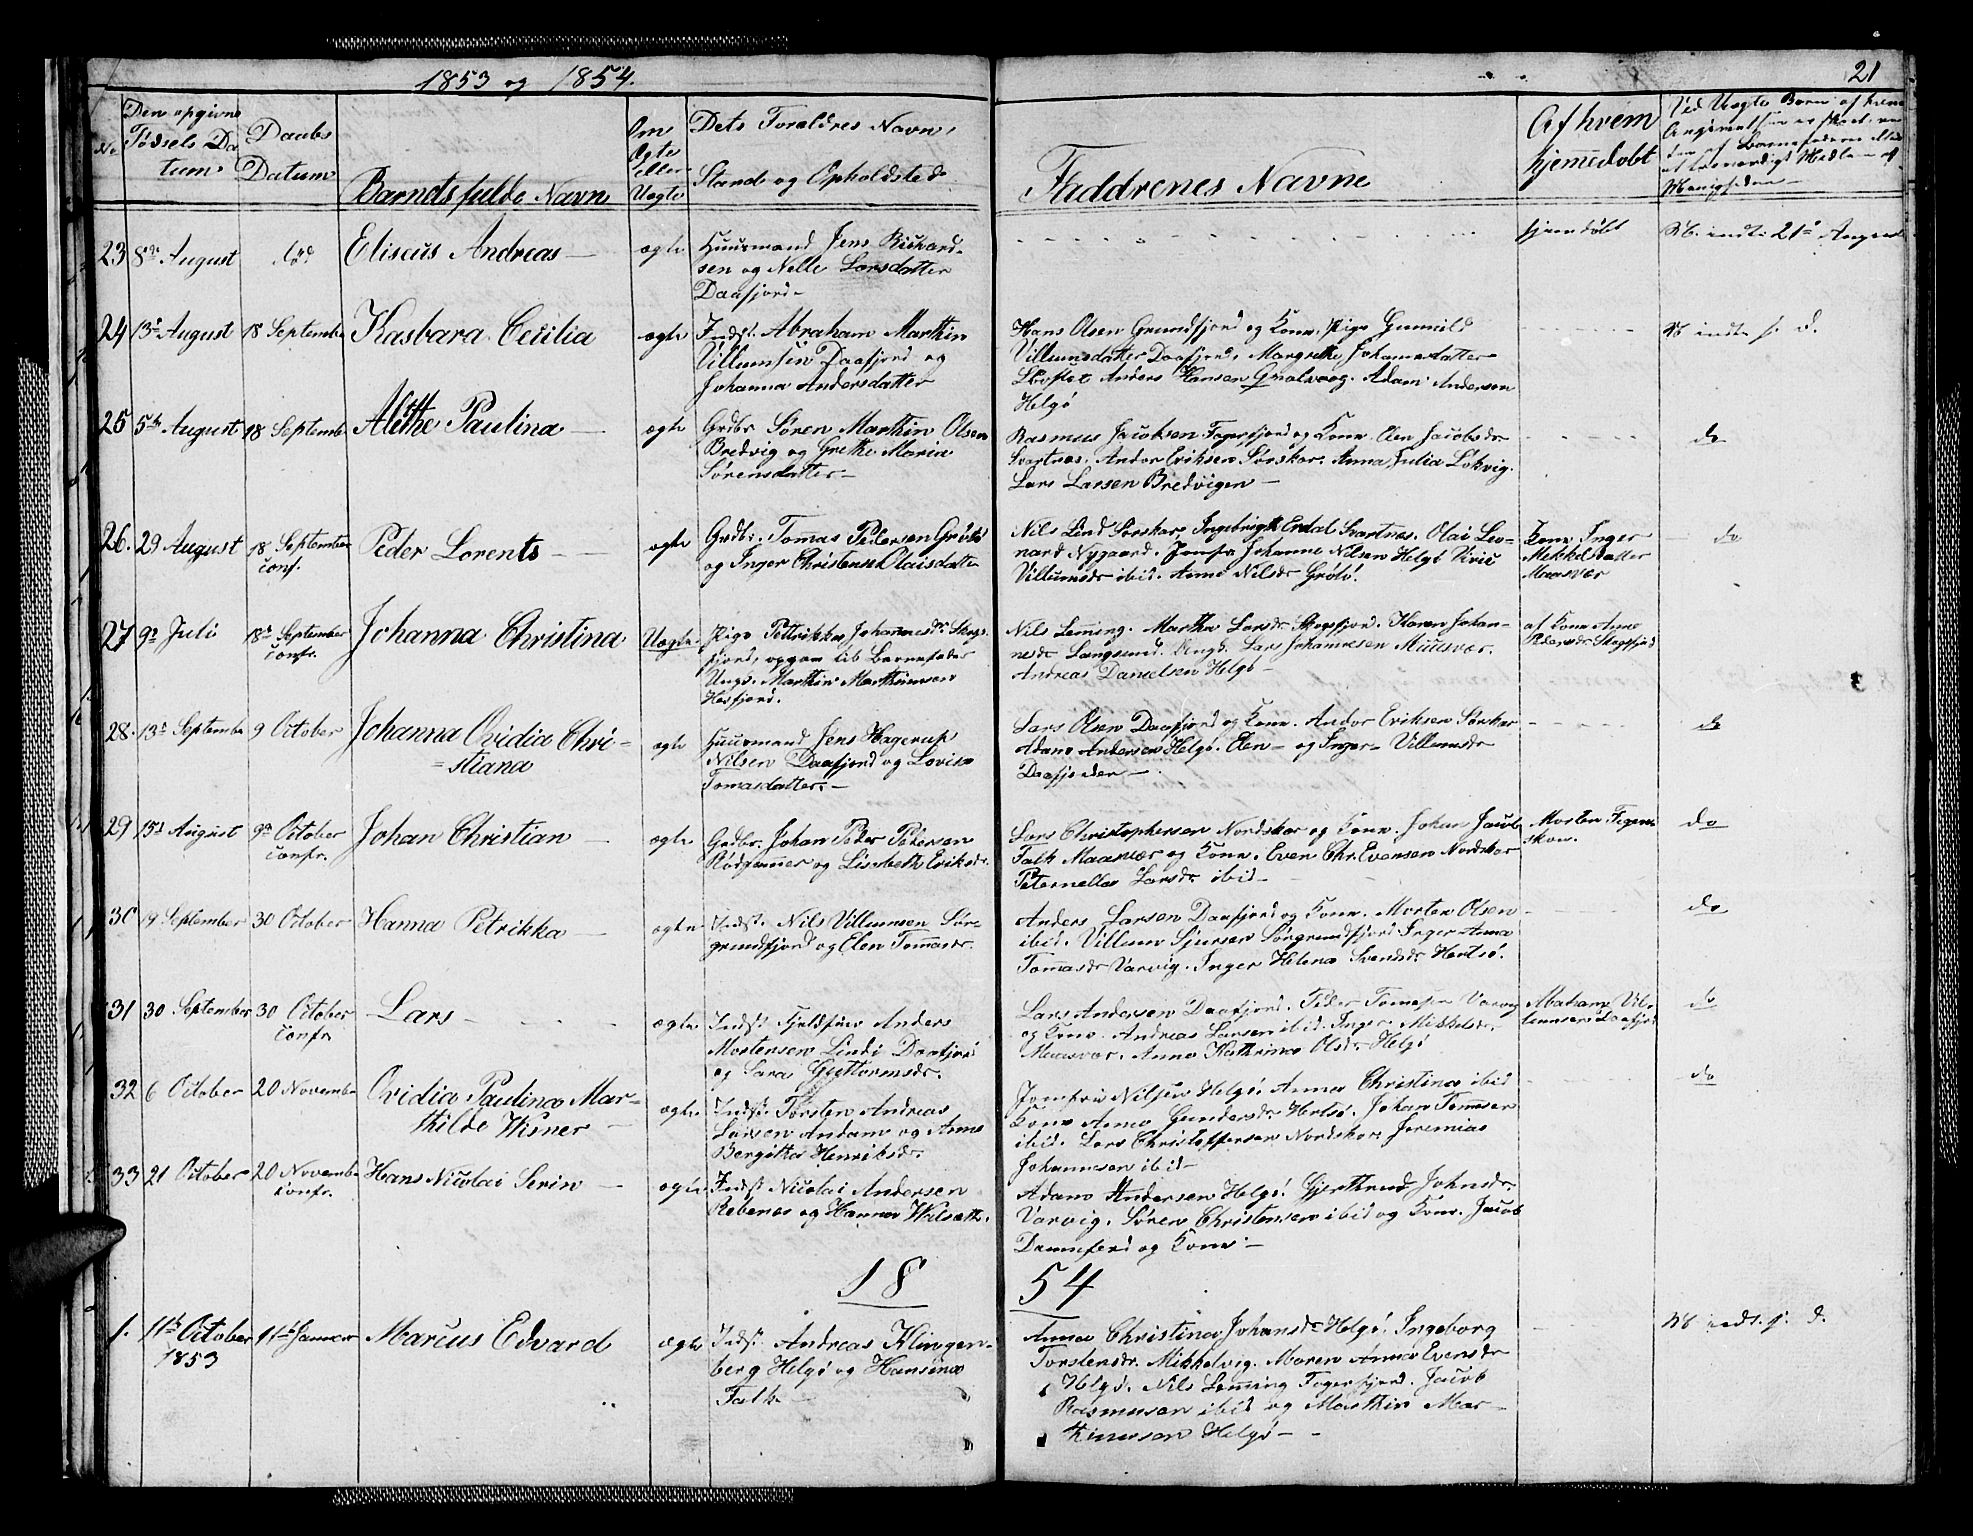 1853 og 1854.
21
No
Den opgivne
Fødsels Da
tum
Daabs
Datum
Barnets fulde Navn
Om
Ægte
eller
Uægte
Dets Foreldres Navn,
Stand og Opholdsted
Faddrenes Navne
Af hvem
hjemedøbt
Ved Uægte Børn
23 8de August død Eliseus Andreas — ægte
Huusmand Jens Rickard-
sen og Nelle Larsdatter
Daafjord-
hjemdøbt
indt. 21de August
24 13de August 18 Septembe Kasbara Cecilia ægte
Indst. Abraham Marthin
Villumsen Daafjord og
Johanna Andersdatter
Hans Olsen Grundfjord og Kone. Pige Gunnild
Villumsdatter Daafjord, Margrethe Johannsdatter
Anders Hansen Adam Andersen
Helgö
indt. s. d.
25 5te August 18 Septemb Alethe Paulina — ægte
Grdbr Søren Marthin Olsen
Bredvig og Grethe Maria
Sørensdatter —
Rasmus Jacobsen Fagerfjord og Kone. Elen Jacobsdr
Svartnes. Andor Eriksen Sørskar. Anna Julia Løkvig.
Lars Larsen Bredvigen —
do
26. 29 August 18 September
conf.
Peder Lorents — ægte
Grdbr. Tomas Pedersen Grötö
og Inger Christense Olaisdatter
Nils Lind Sørskar, Ingebrigt Erdal Svartnes. Olai Leo-
nard Nygaard. Jomfr Johanne Nilsen Helgö
Villumsdr ibid. Anne Nilsdr Grötö.
Kone Inger
Mekkelsdatter
Maasvær
do
27 9de Juli 18de September
confr.
Johanna Christina Uægte
Pige Petrikka Johannesdr Skogs-
fjord, opgav til Barnefader
Ungk. Marthin Marthinusen
Hesfjord.
Nils Leming. Marthe Larsdr Skogsfjord. Karen Johan-
nesdr Langsund. Ungk. Lars Johannesen Muusvær.
Andreas Danielsen Helgö —
af Kone Anne
Pedersdr Skogsfjord
28. 13de Septembe 9 October Johanna Ovidia Chri-
stiana
ægte
Huusmand Jens Hagerup
Nilsen Daafjord og Lovise
Tomasdatter. —
Lars Olsen Daafjord og Kone. Andor Eriksen Sørskar
Adam Andersen Helgö. Elen — og Inger — Villumsdr
Daafjorden —
do
29 15de August 9de October
confr.
Johan Christian — ægte
Grdbr. Johan Peder Petersen
Rödgammer og Lisbeth Eriksdr.
Lars Christophersen Nordskar og Kone. Johan Jacob
Falk Maasvær og Kone. Even Chr. Evensen Nordskar
Peternella Larsdr ibid —
Morten
do
30 19 September 30 October Hanna Petrikka — ægte
Indst. Nils Villumsen Sør-
grundfjord og Elen Tommasdr.
Anders Larsen Daafjord og Kone. Morten Olsen
ibid. Villum Sjursen Sørgrundfjord Inger Anna
Tomasdr Varvig. Inger Helena Svendsdr Hertsö.
do
31 30 September 30 October
confr
Lars — ægte
Indst. Fjeldfin Anders
Mortensen Lindi Daafjord
og Sara Guttormsdr.
Lars Andersen Daafjord. Peder Tomasen Varvig
og Kone. Andreas Larsen ibid. Inger Mikkelsdr.
Maasvær. Anne Kathrine Olsdr Helgö
Abraham Vil-
lumsen Daafjord
do
32 6 October 20 Novembe Ovidia Paulina Mar-
thilde Wisner —
ægte
Indst. Torsten Andreas
Larsen Andam og Anne
Bergitha Henriksdr.
Jomfru Nilsen Helgö. Anne Christina ibid
Kone Anne Gundersdr Hertsö. Johan Tommesen
ibid. Lars Christoffersen Nordskar Jeremias
Johannesen ibid —
do
33 21 October 20 Novembe
confr.
Hans Nicolai Serin — ægte
Indst Nicolai Andersen
Rebenes og Hanna Walsæth.
Adam Andersen Helgö. Gjertrud Johnsdr.
Varvig. Søren Christensen ibid og Kone. Jacob
og Kone —
18 54
1. 11te October
1853
11te Januar Marcus Edvard ægte
Indst. Andreas Klingen-
berg Helgö og Hansine
Falk —
Anne Christina Johansdr Helgö. Ingeborg
Torstensdr. Mikkelvig. Maren Anna Evensdr
Helgö. Nils Leming Fagerfjord. Jacob
Rasmusen ibid og Marthin Mar-
thinusen Helgö —
indt. s. d.